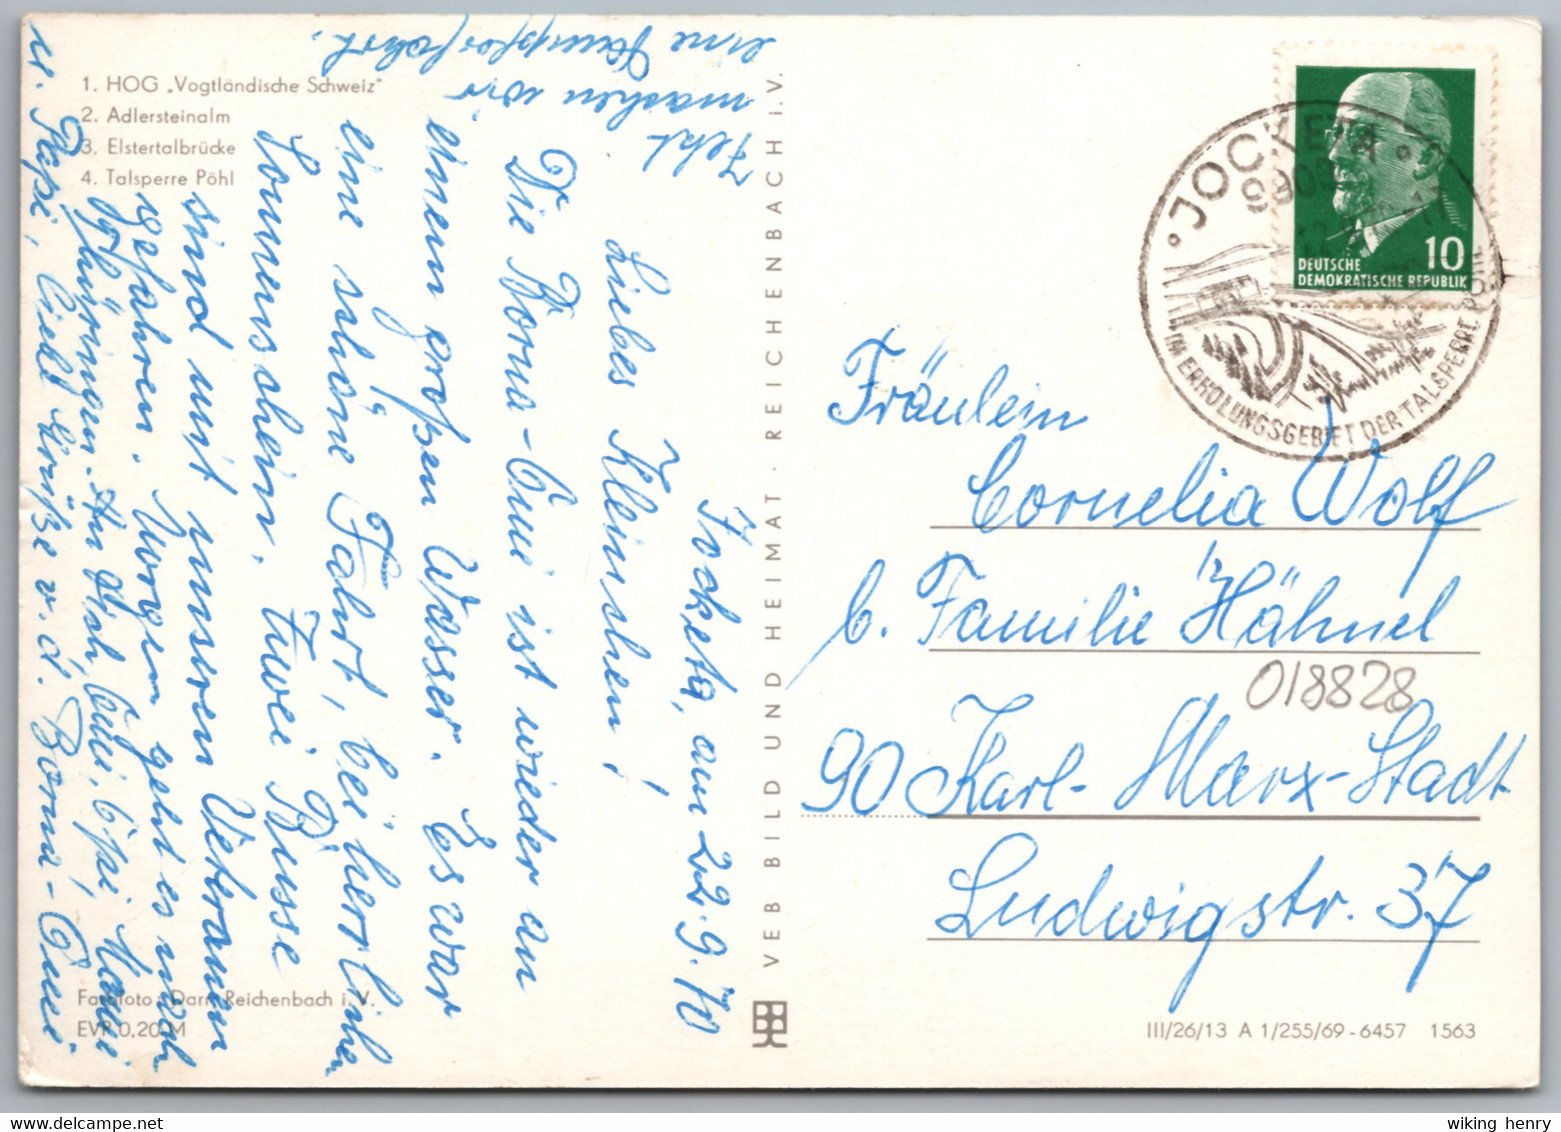 1. HOG „Vogtländische Schweiz"
2. Adlersteinalm
3. Elstertalbrücke
4. Talsperre Pöhl
Jocketa, am 22.9.70
Liebes Kleinchen!
Die Borna-Omi ist wieder an
einem großen Wasser. Es war
eine schöne Fahrt, bei herrlichen
Sonnenschein. Zwei Busse
sind mit unseren Veteranen
gefahren. Morgen geht es nach
Thüringen. An Dich, Omi, Opi, Mami
u. Papi, viele Grüße v. d. Borna-Omi
Jetzt
machen wir
eine Dampferfahrt.
Farbfoto: Darr, Reichenbach i. V.
EVP 0,20 M
VEB BILD UND HEIMAT · REICHENBACH i. V.
JOCKETA
9903
IM ERHOLUNGSGEBIET DER TALSPERRE PÖHL
10
DEUTSCHE
DEMOKRATISCHE REPUBLIK
Fräulein
Cornelia Wolf
b. Familie Hähnel
018828
90 Karl-Marx-Stadt
Ludwigstr. 37
III/26/13 A 1/255/69-6457 1563
wiking henry